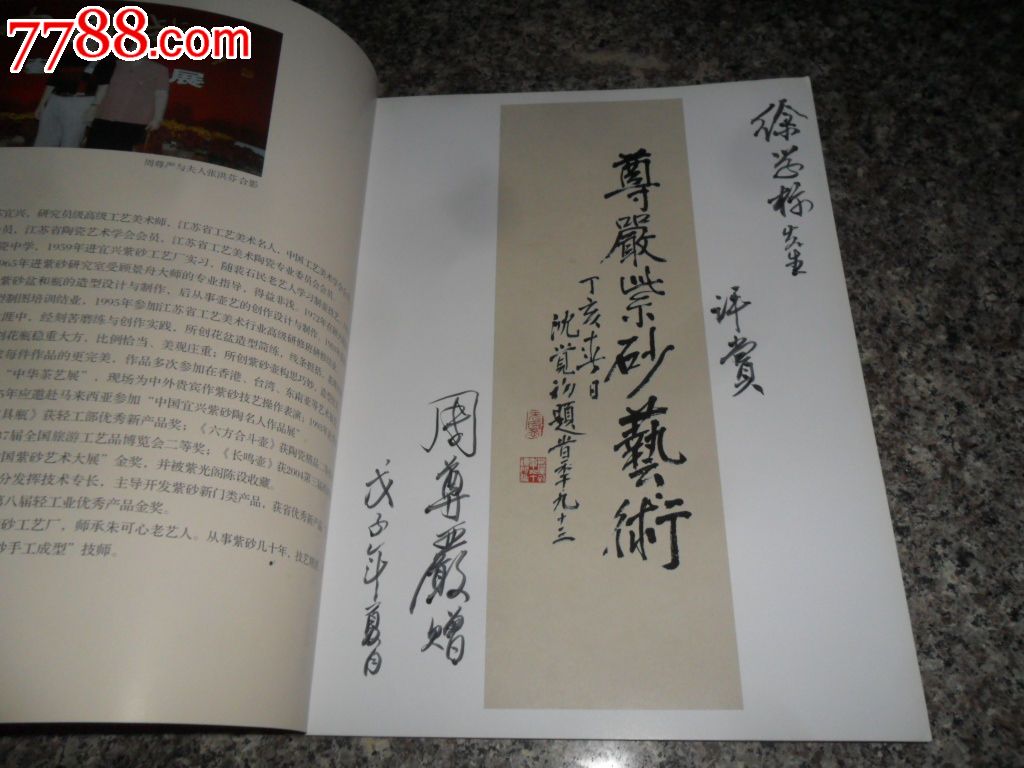 7788.com
展
周尊严与夫人张洪芬合影
宜兴，研究员级高级工艺美术师，江苏省工艺美术名人，中国工艺美术学会会
会员，江苏省陶瓷艺术学会会员，江苏省工艺美术陶瓷专业委员会会员。
瓷中学，1959年进宜兴紫砂工艺厂实习，随裴石民老艺人学习制壶技艺
965年进紫砂研究室受顾景舟大师的专业指导，得益非浅。1972年
紫砂盆和瓶的造型设计与制作，后从事壶艺的创作设计与制作
型制图培训结业，1995年参加江苏省工艺美术行业高级研修班
涯中，经刻苦磨练与创作实践，所创花盆造型简练，线条
创花瓶稳重大方、比例恰当、美观庄重；所创紫砂壶构思巧妙
使每件作品的更完美，作品多次参加在香港、台湾、东南亚等
“中华茶艺展”，现场为中外贵宾作紫砂技艺操作表演；1993年
5年应邀赴马来西亚参加“中国宜兴紫砂陶名人作品展”
具瓶》获轻工部优秀新产品奖；《六方合斗壶》获陶瓷精品
97届全国旅游工艺品博览会二等奖；《长鸣壶》获2004第三
国紫砂艺术大展”金奖，并被紫光阁陈设收藏。
分发挥技术专长，主导开发紫砂新门类产品，获省优秀新产品
第八届轻工业优秀产品金奖。
砂工艺厂，师承朱可心老艺人。从事紫砂几十年，技艺
砂手工成型”技师。
徐学标先生
评赏
尊嚴紫砂藝術
丁亥春日
沈覚初題昔年九十三
周尊严赠
戊子年夏月